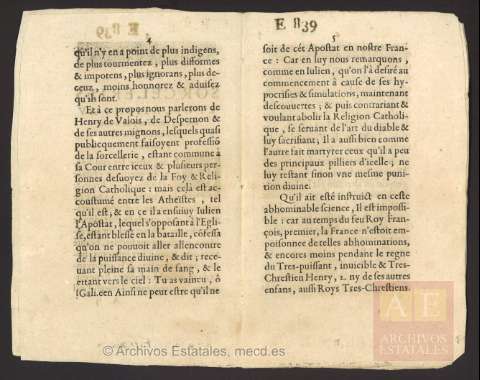 E 839
4
qu'il n'y en a point de plus indigens,
de plus tourmentez, plus difformes
& impotens, plus ignorans, plus de-
ceuz, moins honorez & aduisez
qu'ils sont.
Et à ce propos nous parlerons de
Henry de Valois, de Despernon &
de ses autres mignons, lesquels quasi
publicquement faisoyent professiõ
de la sorcellerie, estant commune à
sa Cour entre iceux & plusieurs per-
sonnes desuoyez de la Foy & Reli-
gion Catholique : mais celà est ac-
coustumé entre les Atheïstes, tel
qu'il est, & en ce il a ensuiuy Iulien
l'Apostat, lequel s'opposant à l'Egli-
se, estant blessé en la bataille, cõfessa
qu'on ne pouuoit aller allencontre
de la puissance diuine, & dit, rece-
uant pleine sa main de sang, & le
iettant vers le ciel : Tu as vaincu, ô
Galileen Ainsi ne peut estre qu'il ne
E 839
5
soit de cét Apostat en nostre Fran-
ce : Car en luy nous remarquons,
comme en Iulien, qu'on l'à desiré au
commencement à cause de ses hy-
pocrisies & simulations, maintenant
descouuertes ; & puis contrariant &
voulant abolir la Religion Catholi-
que, se seruant de l'art du diable &
luy sacrifiant; il a aussi bien comme
l'autre fait martyrer ceux qu'il a peu
des principaux pilliers d'icelle; ne
luy restant sinon vne mesme puni-
tion diuine.
Qu'il ait esté instruict en ceste
abhominable science, Il est impossi-
ble : car au temps du feu Roy Fran-
çois, premier, la France n'estoit em-
poisonnee de telles abhominations,
& encores moins pendant le regne
du Tres-puissant, inuicible & Tres-
Chrestien Henry, 2. ny de ses autres
enfans, aussi Roys Tres-Chrestiens
AE
ARCHIVOS
ESTATALES
© Archivos Estatales, mecd.es